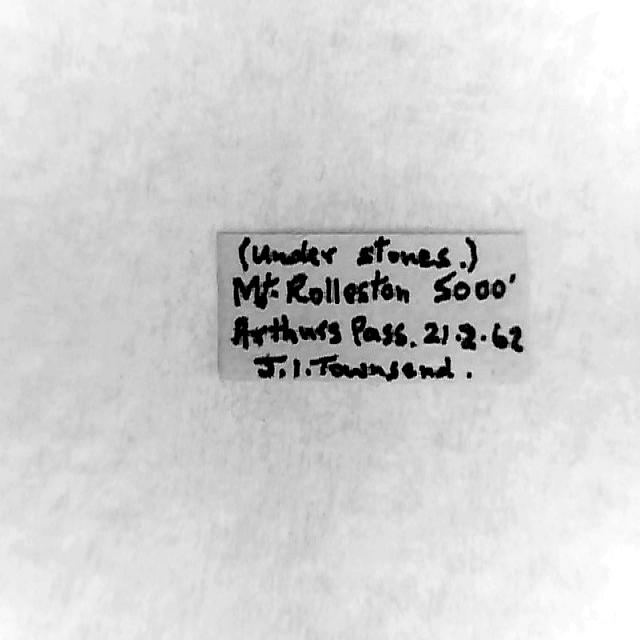 (under stones.)
Mt. Rolleston 5000'
Arthurs Pass. 21.2.62
J.I. Townsend.